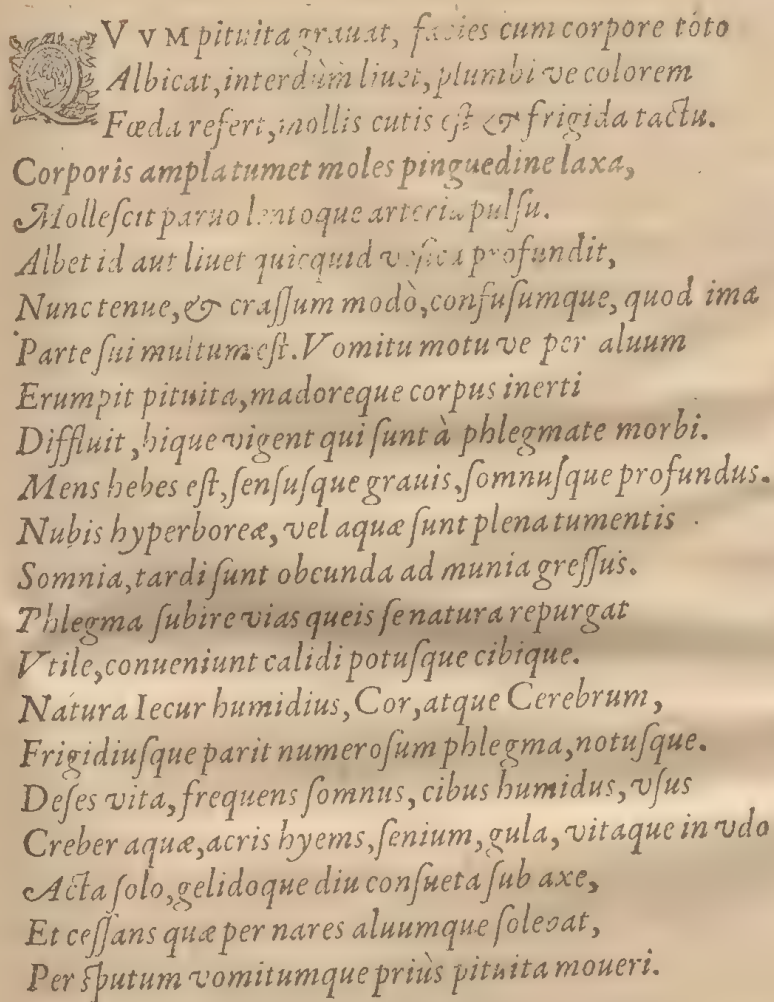 QVVM pituita grauat, facies cum corpore toto
Albicat, interdùm liuet, plumbi ve colorem
Fœda refert, mollis cutis eſt & frigida tactu.
Corporis ampla tumet moles pinguedine laxa,
Molleſcit paruo lentoque arteria pulſu.
Albet id aut liuet quicquid veſica profundit,
Nunc tenue, & craſſum modò, confuſumque, quod imæ
Parte ſui multum eſt. Vomitu motu ve per aluum
Erumpit pituita, madoreque corpus inerti
Diffluit, hique vigent qui ſunt à phlegmate morbi.
Mens hebes eſt, ſenſuſque grauis, ſomnuſque profundus.
Nubis hyperboreæ, vel aquæ ſunt plena tumentis
Somnia, tardi ſunt obeunda ad munia greſſus.
Phlegma ſubire vias queis ſe natura repurgat
Vtile, conueniunt calidi potuſque cibique.
Natura Iecur humidius, Cor, atque Cerebrum,
Frigidiuſque parit numeroſum phlegma, notuſque.
Deſes vita, frequens ſomnus, cibus humidus, vſus
Creber aquæ, acris hyems, ſenium, gula, vitaque in vdo
Acta ſolo, gelidoque diu conſueta ſub axe,
Et ceſſans quæ per nares aluumque ſolebat,
Per ſputum vomitumque priùs pituita moueri.